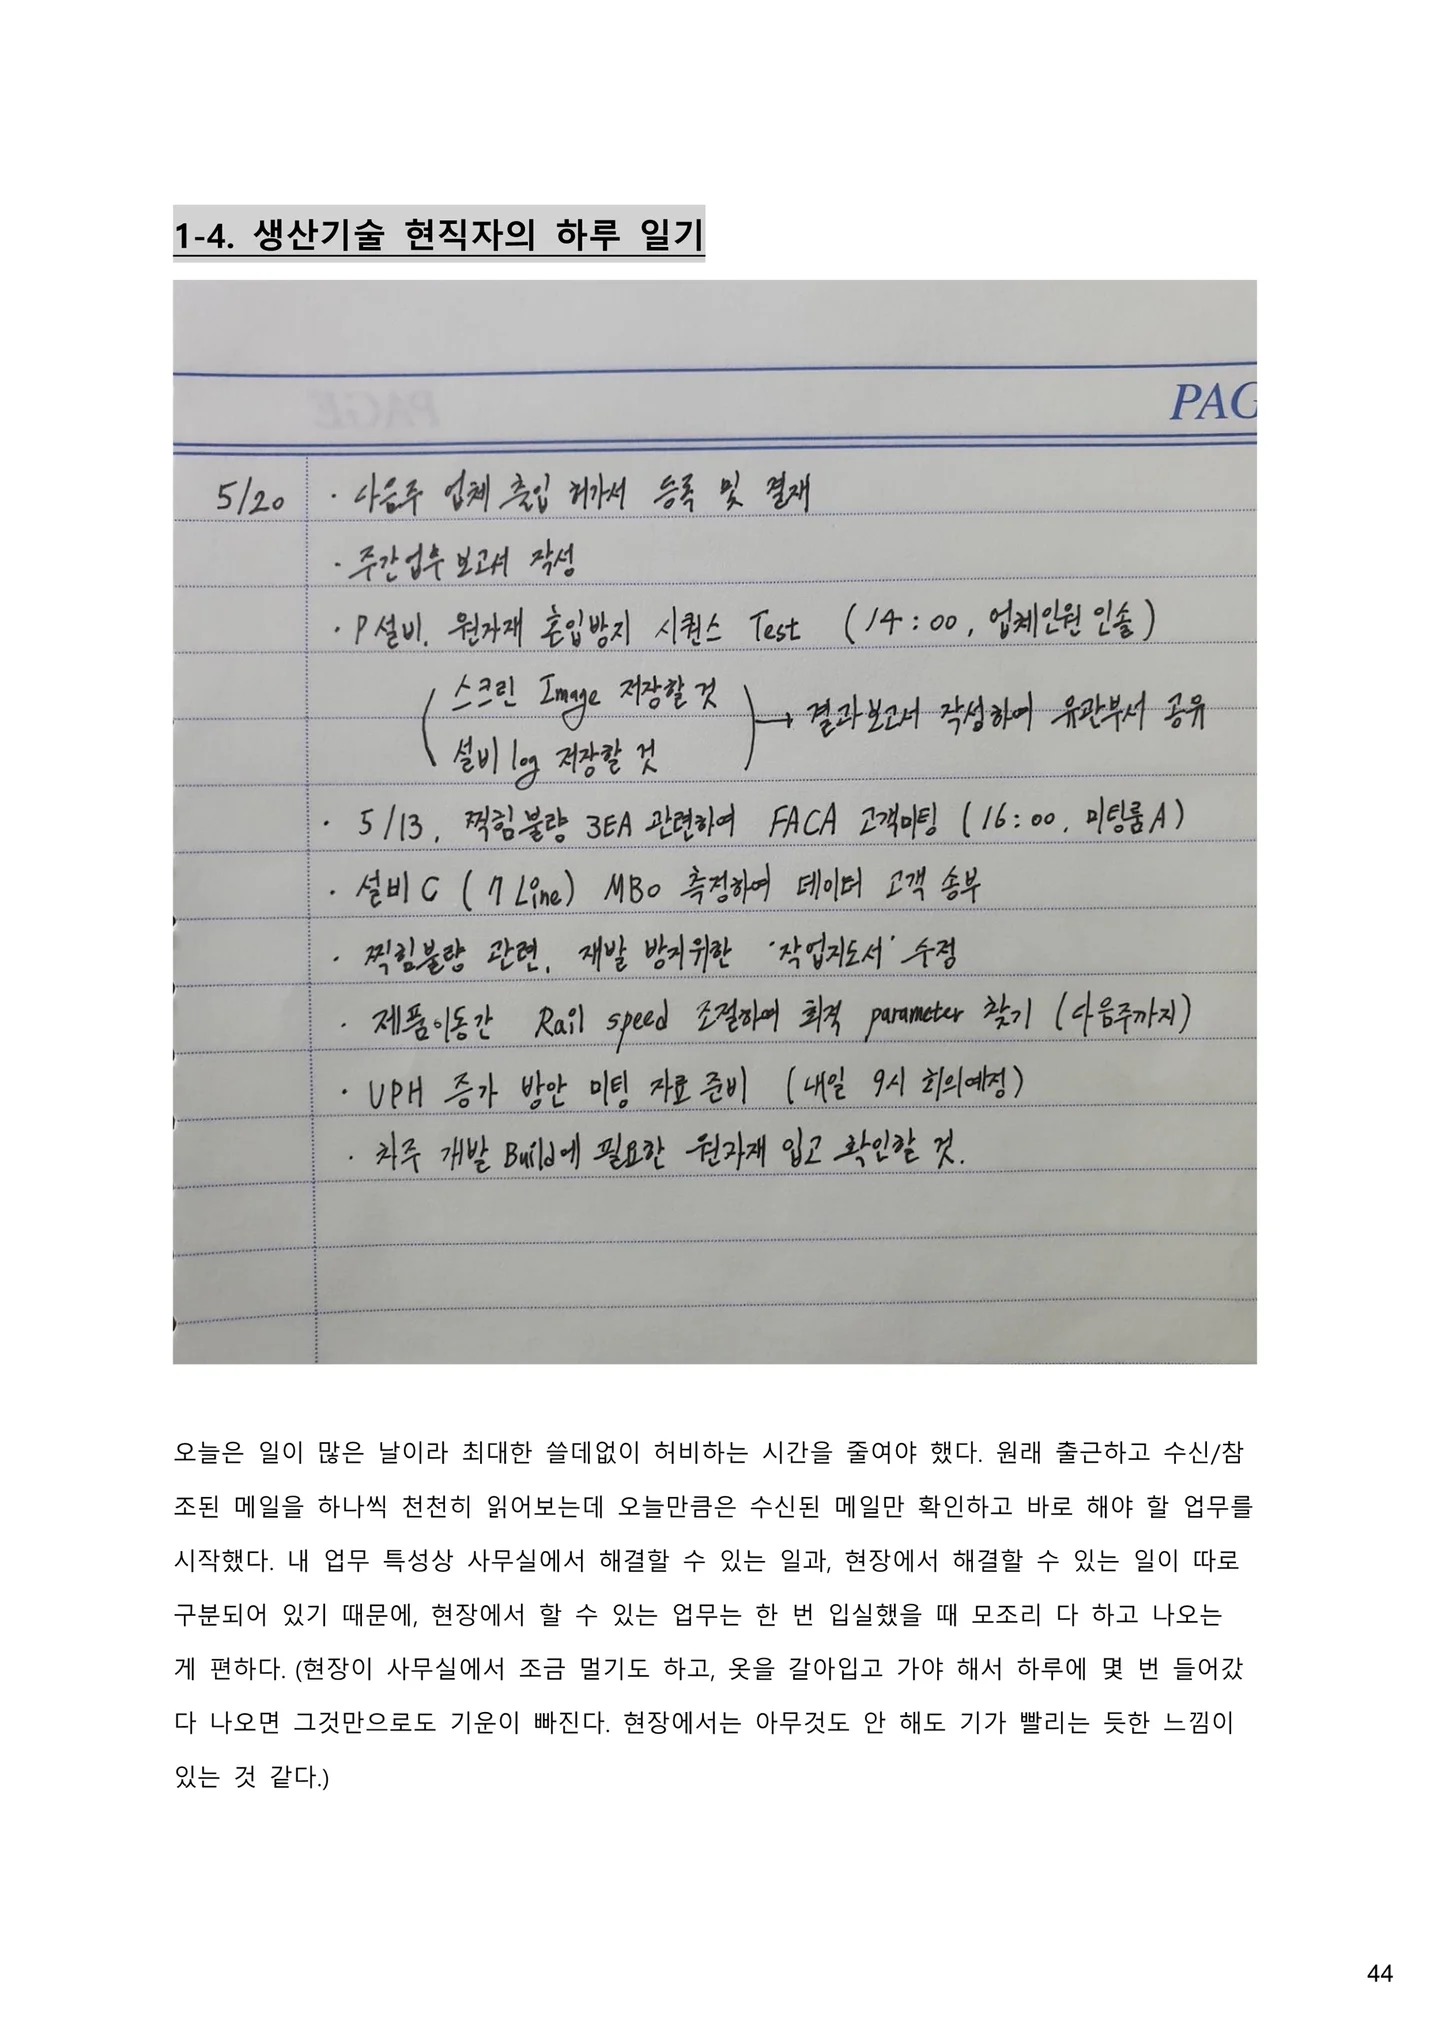 1-4. 생산기술 현직자의 하루 일기
PAG
PAGE
5/20 · 다음주 업체 출입 허가서 등록 및 결재
· 주간업무 보고서 작성
· P설비. 원자재 혼입방지 시퀀스 Test (14:00, 업체인원 인솔)
스크린 Image 저장할 것
→ 결과보고서 작성하여 유관부서 공유
설비 log 저장할 것
· 5/13, 찍힘불량 3EA 관련하여 FACA 고객미팅 (16:00, 미팅룸A)
· 설비 C (7 Line) MBO 측정하여 데이터 고객 송부
· 찍힘불량 관련, 재발 방지위한 '작업지도서' 수정
· 제품이동간 Rail speed 조절하여 최적 parameter 찾기 (다음주까지)
· UPH 증가 방안 미팅 자료 준비 (내일 9시 회의예정)
· 차주 개발 Build에 필요한 원자재 입고 확인할 것.
오늘은 일이 많은 날이라 최대한 쓸데없이 허비하는 시간을 줄여야 했다. 원래 출근하고 수신/참
조된 메일을 하나씩 천천히 읽어보는데 오늘만큼은 수신된 메일만 확인하고 바로 해야 할 업무를
시작했다. 내 업무 특성상 사무실에서 해결할 수 있는 일과, 현장에서 해결할 수 있는 일이 따로
구분되어 있기 때문에, 현장에서 할 수 있는 업무는 한 번 입실했을 때 모조리 다 하고 나오는
게 편하다. (현장이 사무실에서 조금 멀기도 하고, 옷을 갈아입고 가야 해서 하루에 몇 번 들어갔
다 나오면 그것만으로도 기운이 빠진다. 현장에서는 아무것도 안 해도 기가 빨리는 듯한 느낌이
있는 것 같다.)
44